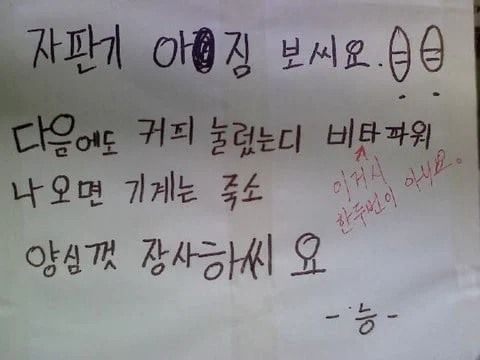 자판기 아짐 보씨요.
다음에도 커피 눌렀는디 비타파워
나오면 기계는 죽소
이거시
한두번이 아니요.
양심껏 장사하씨요
-능-